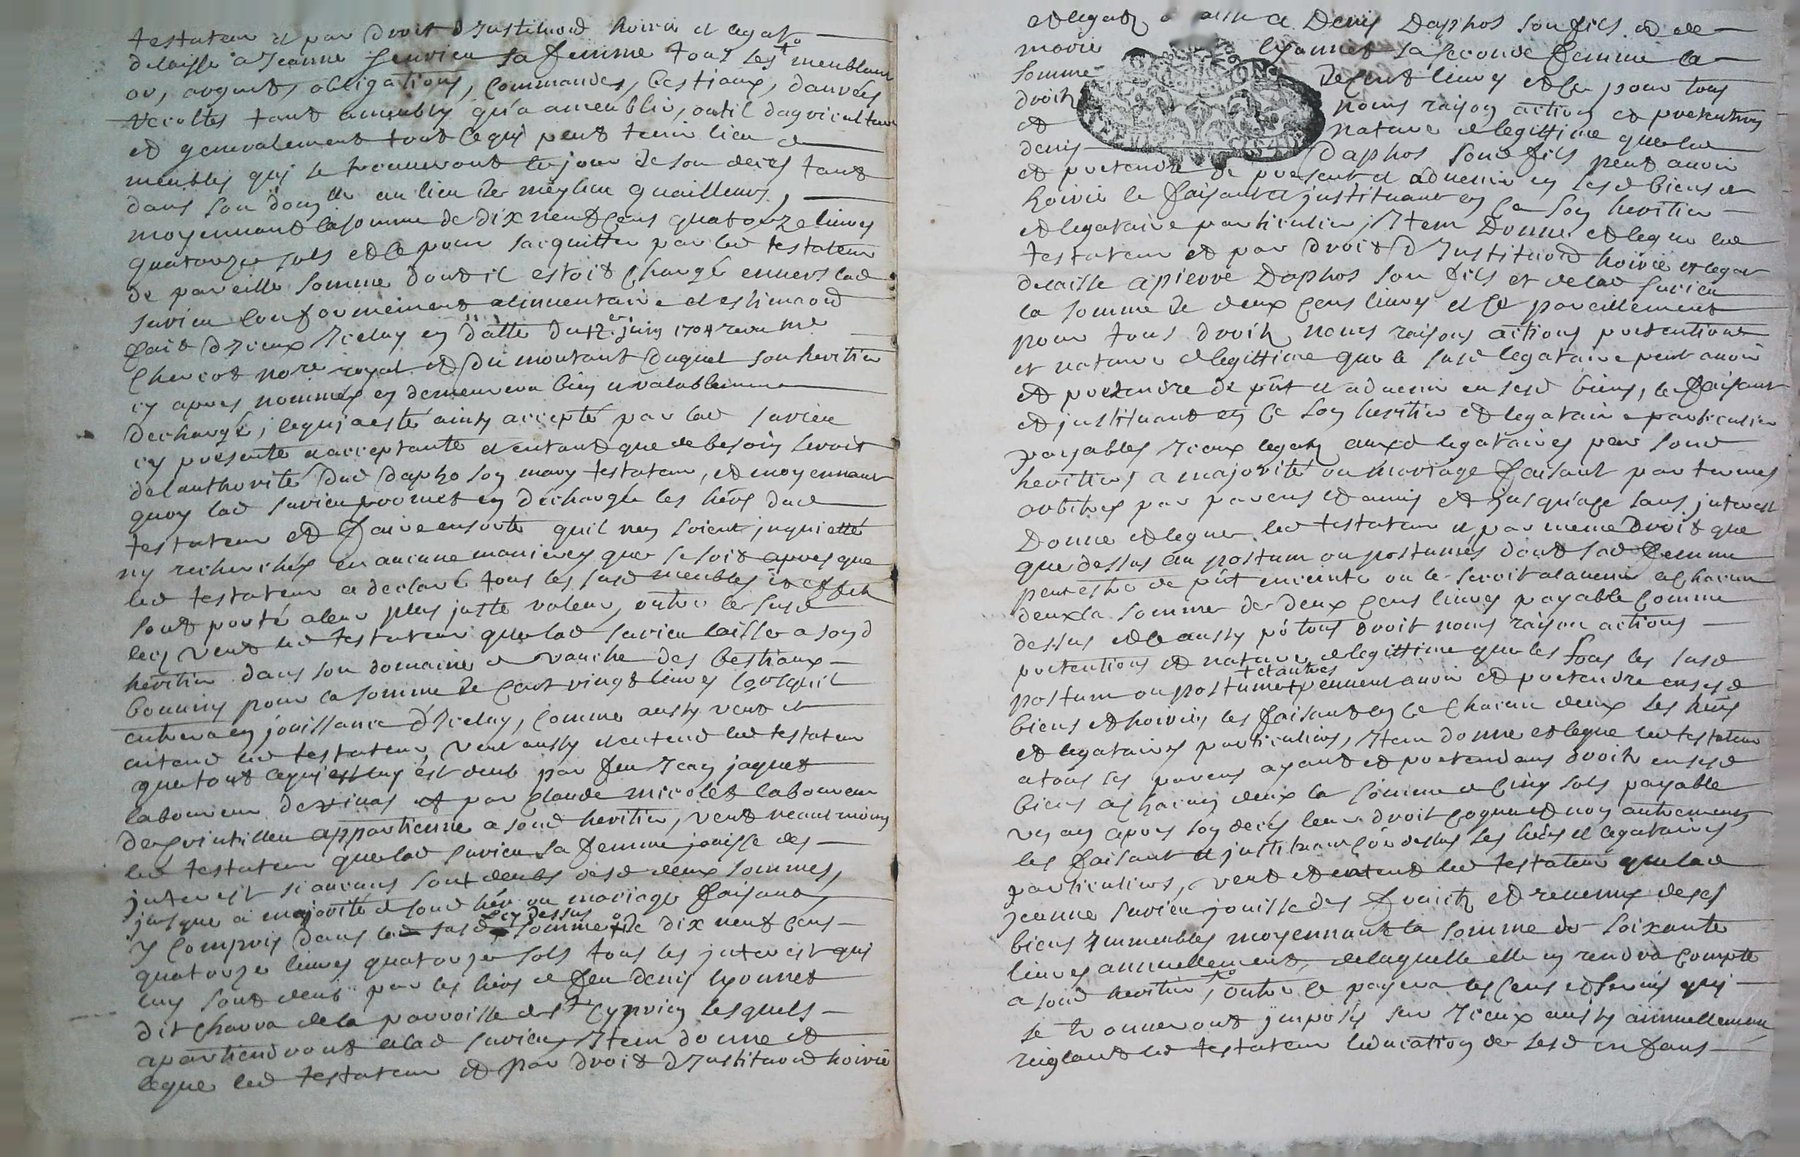 testateur et par droit d'Institu̅o̅n hoirie et legat
delaisse a Jeanne Savien sa femme tous ses meublans
or, argent, obligations, commandes, bestiaux, danrées
recoltes tant ameubly qu'a ameublir, outil dagriculture
et generalement tout ce qui peut tenir lieu de
meubles qui se trouveront le jour de son deces tant
dans son dom̅lle au lieu de meylieu qu'ailleurs,
moyennant la somme de dix neuf cens quatorze livres
quatorze sols et ce pour sacquitter par led testateur
de pareille somme dont il estoit chargé envers lad
Savien conformement a linventaire et estima̅o̅n
fait d'Iceux Icelny en datte du 12e juin 1704 receu me
Chercot no̅re̅ royal et du montant duquel son heritier
cy apres nommé en demeurera bien et valablement
dechargé, ce qui a esté ainsy accepté par lad Savien
cy presente et acceptante et entant que de besoin seroit
de l'authorité dud Dapho son mary testateur, et moyennant
quoy lad Savien promet en decharge les hers dud
testateur et faire en sorte quil n'en soient inquietté
ny recherchés en aucune manieres que ce soit apres que
led testateur a declaré tous les susd meubles et effets
sont porté a leur plus juste valeur, outre le susd
leg veut led testateur que lad Savien laisse a sond
heritier dans son domaine de vauche des bestiaux
bovins pour la somme de cent vingt livres lorsquil
entrera en jouissance d'Icelny, comme aussy veut et
entend led testateur, veut aussy et entend led testateur
que tout ce qui luy est deub par feu Jean jaquet
laboureur de vinas et par Claude micolet laboureur
de quintilleu appartienne a sond heritier, veut neanmoins
led testateur que lad Savien sa femme jouisse des
interest si aucuns sont deubs desd deux sommes,
jusque a majorité de sond her ou mariage faisant
Y compris dans lad susd somme de dix neuf cens
cy dessus
quatorze livres quatorze sols tous les interest qui
luy sont deub par les hers de feu denis lyonnet
dit charra de la parroisse de St Cyprien lesquels
apartiendront a lad Savien, Item donne et
legue led testateur et par droit d'Institu̅o̅n hoirie
et legat a Denis Daphos son fils et de
marie lyonnet sa seconde femme la
somme de cent livres et ce pour tous
droits noms raison action et pretention
et nature de legittime que led
denis Daphos sond fils peut avoir
et pretendre de present et advenir en sesd biens et
hoirie le faisant et instituant en ce son heritier
et legataire particulier, Item Donne et legue led
testateur et par droit d'Institu̅o̅n hoirie et legat
delaisse a pierre Daphos son fils et de lad Savien
la somme de deux cens livres et ce pareillement
pour tous droits noms raisons actions pretentions
et nature de legittime que le susd legataire peut avoir
et pretendre de p̅n̅t et advenir en sesd biens, le faisant
et instituant en ce son heritier et legataire particulier
payables Iceux legats auxd legataires par sond
heritiers a majorité ou mariage faisant par termes
arbitres par parens et amis et jusqu'a ce sans interest
Donne et legue led testateur et par meme droit que
que dessus au postum ou postumes dont sad femme
peut estre de p̅n̅t enceinte ou le seroit a ladvenir a chacun
deux la somme de deux cens livres payable comme
dessus et ce aussy p̅r tout droit noms raison actions
pretentions et nature de legittime que les tous les susd
postum ou postumes et autres peuvent avoir et pretendre en sesd
biens et hoiries les faisant en ce chacun deux ses hers
et legataires particuliers, Item donne et legue led testateur
a tous ses parens ayant et pretendans droit en sesd
biens a chacun deux la somme de cinq sols payable
un an apres son deces leur droit cognu et non autrement
les faisant et instituant co̅e dessus ses hers et legataires
particuliers, veut et entend led testateur que lad
Jeanne Savien jouisse des fruits et revenus de ses
biens Immeubles moyennant la somme de soixante
livres annuellement, de laquelle elle en rendra compte
a sond heritier, outre ce payera les cens et servis qui
se trouveront imposés sur Iceux aussy annuellement
reiglant led testateur leducation de sesd enfans